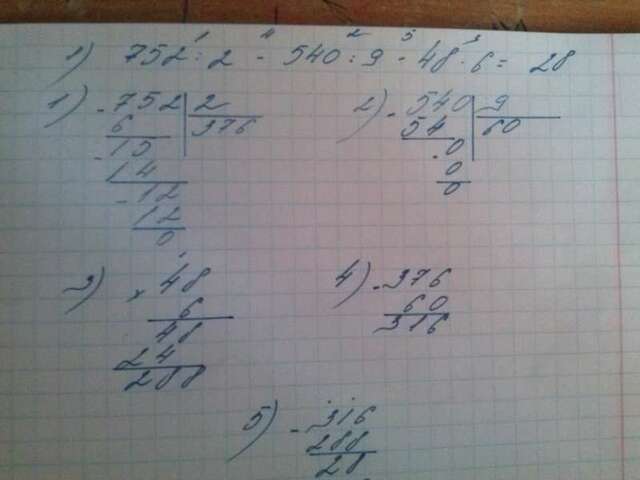 1 4 2 5 3
1) 752 : 2 - 540 : 9 - 48 · 6 = 28
1) - 752 | 2
6 376
- 15
14
- 12
12
0
2) - 540 | 9
54 60
- 0
0
0
3) × 48
6
48
24
288
4) - 376
60
316
5) - 316
288
28